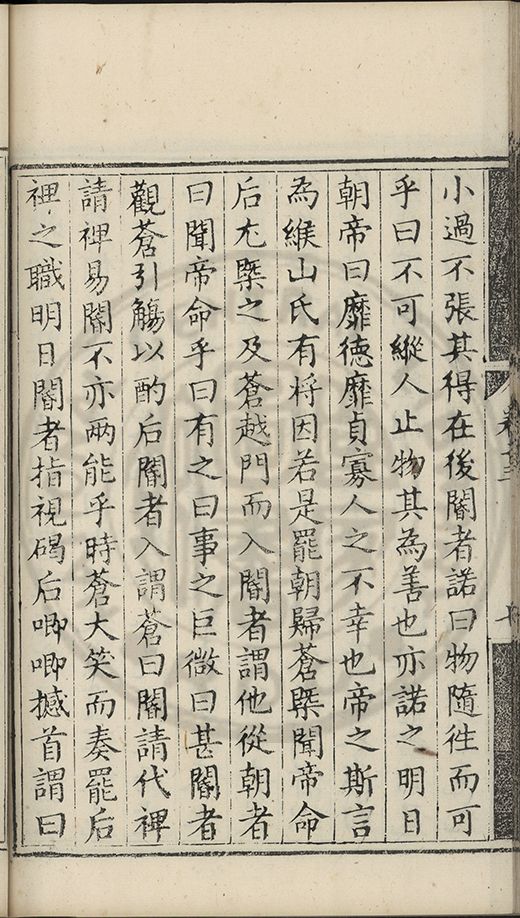 小過不張其得在後閽者諾曰物隨徃而可
乎曰不可縱人止物其為善也亦諾之明日
朝帝曰靡德靡貞寡人之不幸也帝之斯言
為緱山氏有将因若是罷朝歸蒼槩聞帝命
后尢槩之及蒼越門而入閽者謂他從朝者
曰聞帝命乎曰有之曰事之巨微曰甚閽者
觀蒼引觴以酌后閽者入謂蒼曰閽請代裨
請裨易閽不亦两能乎時蒼大笑而奏罷后
裡之職明日閽者指視碣后唧唧撼首謂曰
卷十三